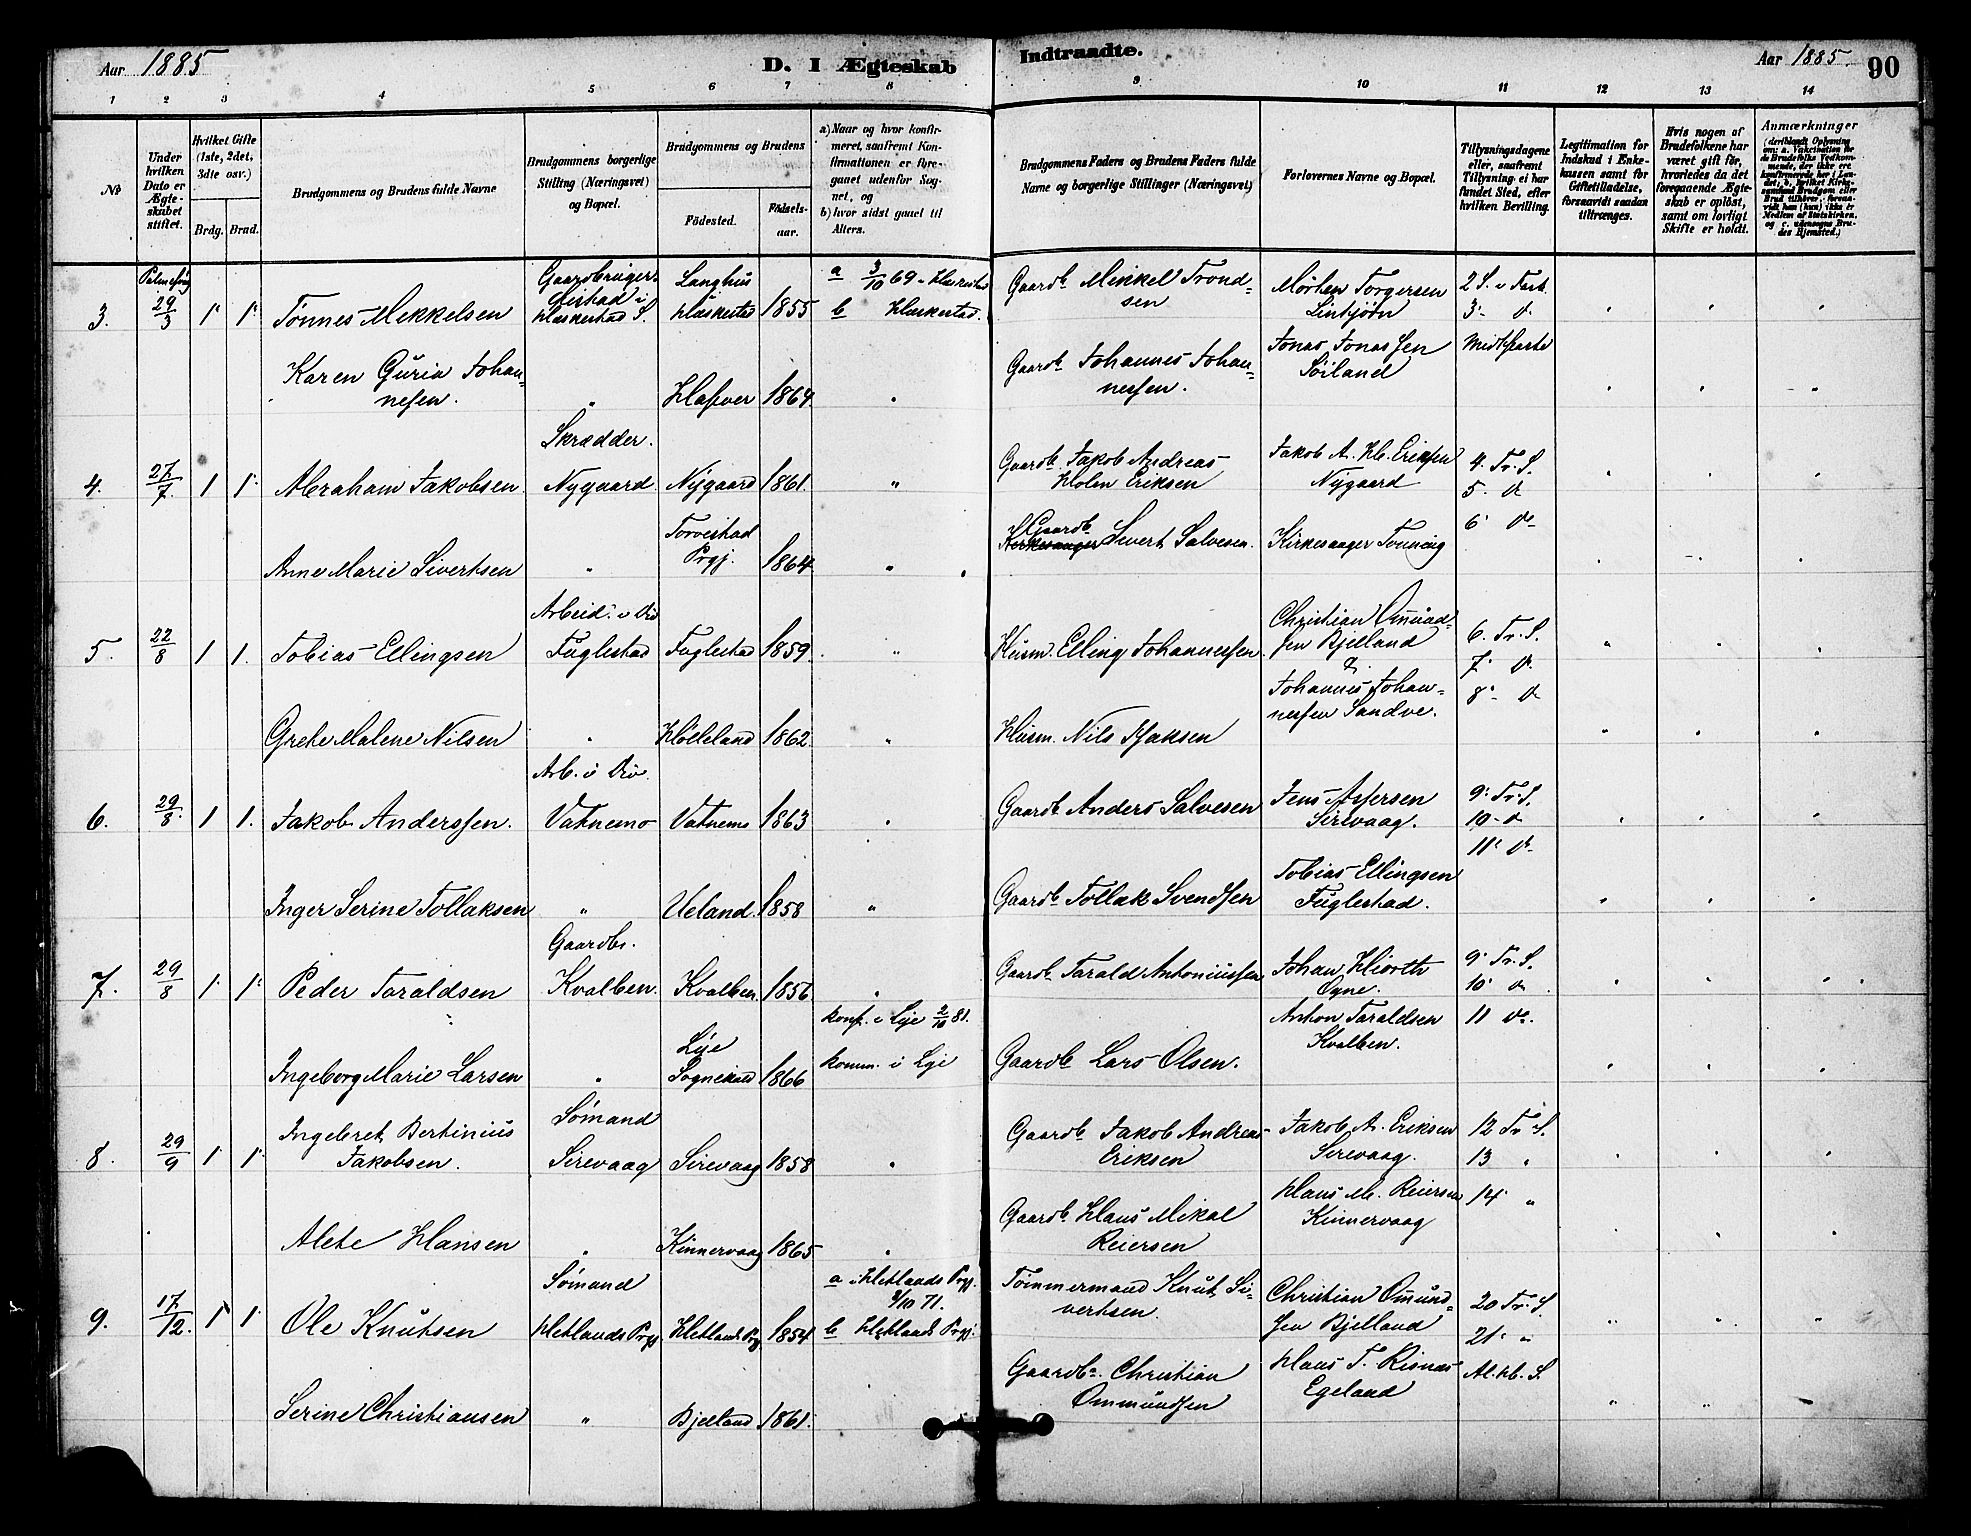 Aar 1885
D. I Ægteskab
Indtraadte.
Aar 1885.
90
1 2 3 4 5 6 7 8 9 10 11 12 13 14
No
Under hvilken Dato er Ægteskabet stiftet.
Hvilket Gifte (1ste, 2det, 3dte osv.)
Brdg. Brud.
Brudgommens og Brudens fulde Navne
Brudgommens borgerlige Stilling (Næringsvei) og Bopæl.
Brudgommens og Brudens
Födested.
Födselsaar.
a) Naar og hvor konfirmeret, saafremt Konfirmationen er foreganet udenfor Sognet, og
b) hvor sidst gaaet til Alters.
Brudgommens Faders og Brudens Faders fulde Navne og borgerlige Stillinger (Næringsvei)
Forlovernes Navne og Bopæl.
Tillysningsdagene eller, saafremt Tillysning ei har fundet Sted, efter hvilken Bevilling.
Legitimation for Indskud i Enkekassen samt for Giftetilladelse, forsaavidt saadan tiltrænges.
Hvis nogen af Brudefolkene har været gift før, hvorledes da det foregaaende Ægteskab er oplöst, samt om lovligt Skifte er holdt.
Anmærkninger
3. 29/3 1 1 Tönnes Mekkelsen
Haskestad S. Langhus Haskestad 1855
a 3/10 69 i Haskestad
b Haskestad.
Gaardb. Mikkel Trondsen
Morten Torgersen
3 d
Karen Guria Johannesen. " 1864 "
Gaardb. Johannes Johannessen.
Jonas Jonassen Söiland
Midtfaste
Skrædder.
4. 27/7 1 1 Abraham Jakobsen Nygaard Nygaard 1861 "
Gaardb. Jakob Andreas Holm Eriksen
Jakob A. H. Eriksen Nygaard
4. Tr. S.
5. d
6. d
Anne Marie Sivertsen " Torvestad Prgj. 1864 "
Gaardb. Sivert Salvesen.
Kirkesanger Tonning
5. 22/8 1 1. Tobias Ellingsen
Fuglestad Fuglestad 1859. "
Husm. Elling Johannessen.
Christian Omundsen Bjelland
&
Johannes Johannessen Sandve.
6. Tr. S.
7. d
8. d
Grethe Malene Nilsen " Hölleland 1862 "
Husm. Nils Isaksen
6. 29/8 1 1. Jakob Anderssen. Vatnemo Vatnemo 1863 "
Gaardb. Anders Salvesen
Jens Aspersen Sirevaag.
9. Tr. S.
10 d
11. d
Inger Serine Tollaksen " Ueland. 1858 "
Gaardb. Tollak Svendsen
Tobias Ellingsen Fuglestad.
Gaardbr.
7. 29/8 1 1 Peder Taraldsen Kvalben. Kvalben. 1856 "
Gaardb. Tarald Antoniussen
Johan Hiorth Ogne.
Anton Taraldsen Kvalben.
9. Tr. S.
10. d
11 do.
konf. i Lye 2/10 81.
komm. i Lye
Ingeborg Marie Larsen " Lye Sognekald 1866
Gaardb. Lars Olsen.
Sömand
8. 29/9 1 1 Ingebret Bertinius Jakobsen. Sirevaag Sirevaag 1858 "
Gaardb. Jakob Andreas Eriksen
Jakob A. Eriksen Sirevaag.
12 Tr. S.
13 "
14 "
Alete Hansen " Kinnervaag 1865 "
Gaardb. Hans Mikal Reiersen
Hans M. Reiersen Kinnervaag
Sömand
9. 17/12. 1 1 Ole Knutsen Hetlands Prgj Hetlands Prg 1854
a i Hetlands Prgj. 71.
b Hetlands Prgj.
Tömmermand Knut Sivertsen.
Christian Omundsen Bjelland
20 Tr. S.
21. "
Al. H. S.
Serine Christiansen " Bjelland 1861.
Gaardb. Christian Ommundsen
Hans T. Risnes Egeland